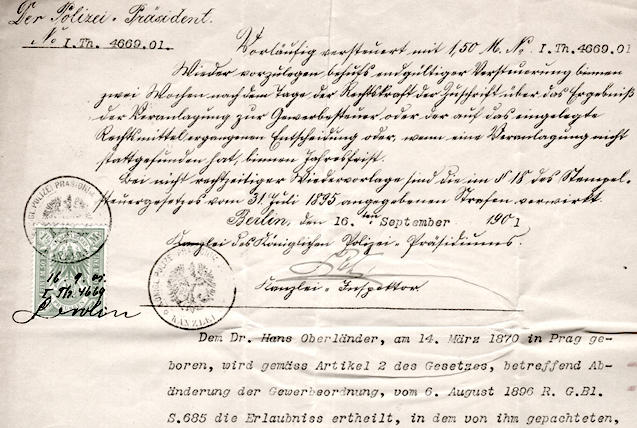 Der Polizei-Präsident.
No I.Th. 4669.01.
Vorläufig versteuert mit 1,50 M. No I.Th. 4669.01
Wieder vorzulegen behufs endgültiger Versteuerung binnen
zwei Wochen nach dem Tage der Rechtskraft der Zuschrift über das Ergebniß
der Veranlagung zur Gewerbesteuer oder der auf das eingelegte
Rechtsmittel ergangenen Entscheidung oder, wenn eine Veranlagung nicht
stattgefunden hat, binnen Jahresfrist.
Bei nicht rechtzeitiger Wiedervorlage sind die im § 18 des Stempel-
steuergesetzes vom 31. Juli 1895 angegebenen Strafen verwirkt.
Berlin, den 16. ten September 1901
Kanzlei des Königlichen Polizei-Präsidiums.
Kanzlei-Inspektor
KÖNIGL. POLIZEI PRÄSIDIUM
KANZLEI
16. 9. 01.
I Th. 4669
Berlin
Dem Dr. Hans Oberländer, am 14. März 1870 in Prag ge-
boren, wird gemäss Artikel 2 des Gesetzes, betreffend Ab-
änderung der Gewerbeordnung, vom 6. August 1896 R. G.Bl.
S.685 die Erlaubniss ertheilt, in dem von ihm gepachteten,